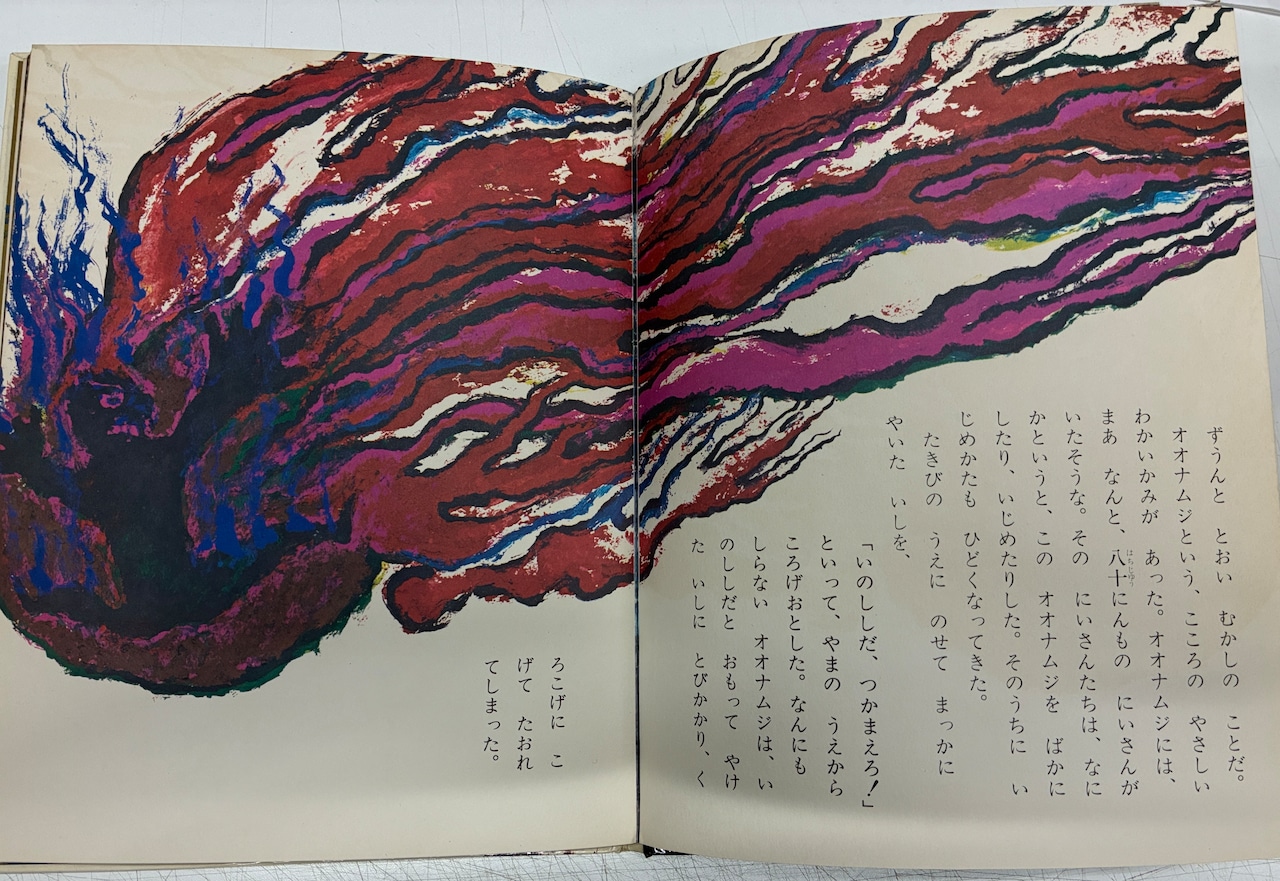 ずうんと とおい むかしの ことだ。
オオナムジという、こころの やさしい
わかいかみが あった。オオナムジには、
まあ なんと、八十にんもの にいさんが
はちじゅう
いたそうな。その にいさんたちは、なに
かというと、この オオナムジを ばかに
したり、いじめたりした。そのうちに い
じめかたも ひどくなってきた。
たきびの うえに のせて まっかに
やいた いしを、
「いのししだ、つかまえろ!」
といって、やまの うえから
ころげおとした。なんにも
しらない オオナムジは、い
のししだと おもって やけ
た いしに とびかかり、く
ろこげに こ
げて たおれ
てしまった。